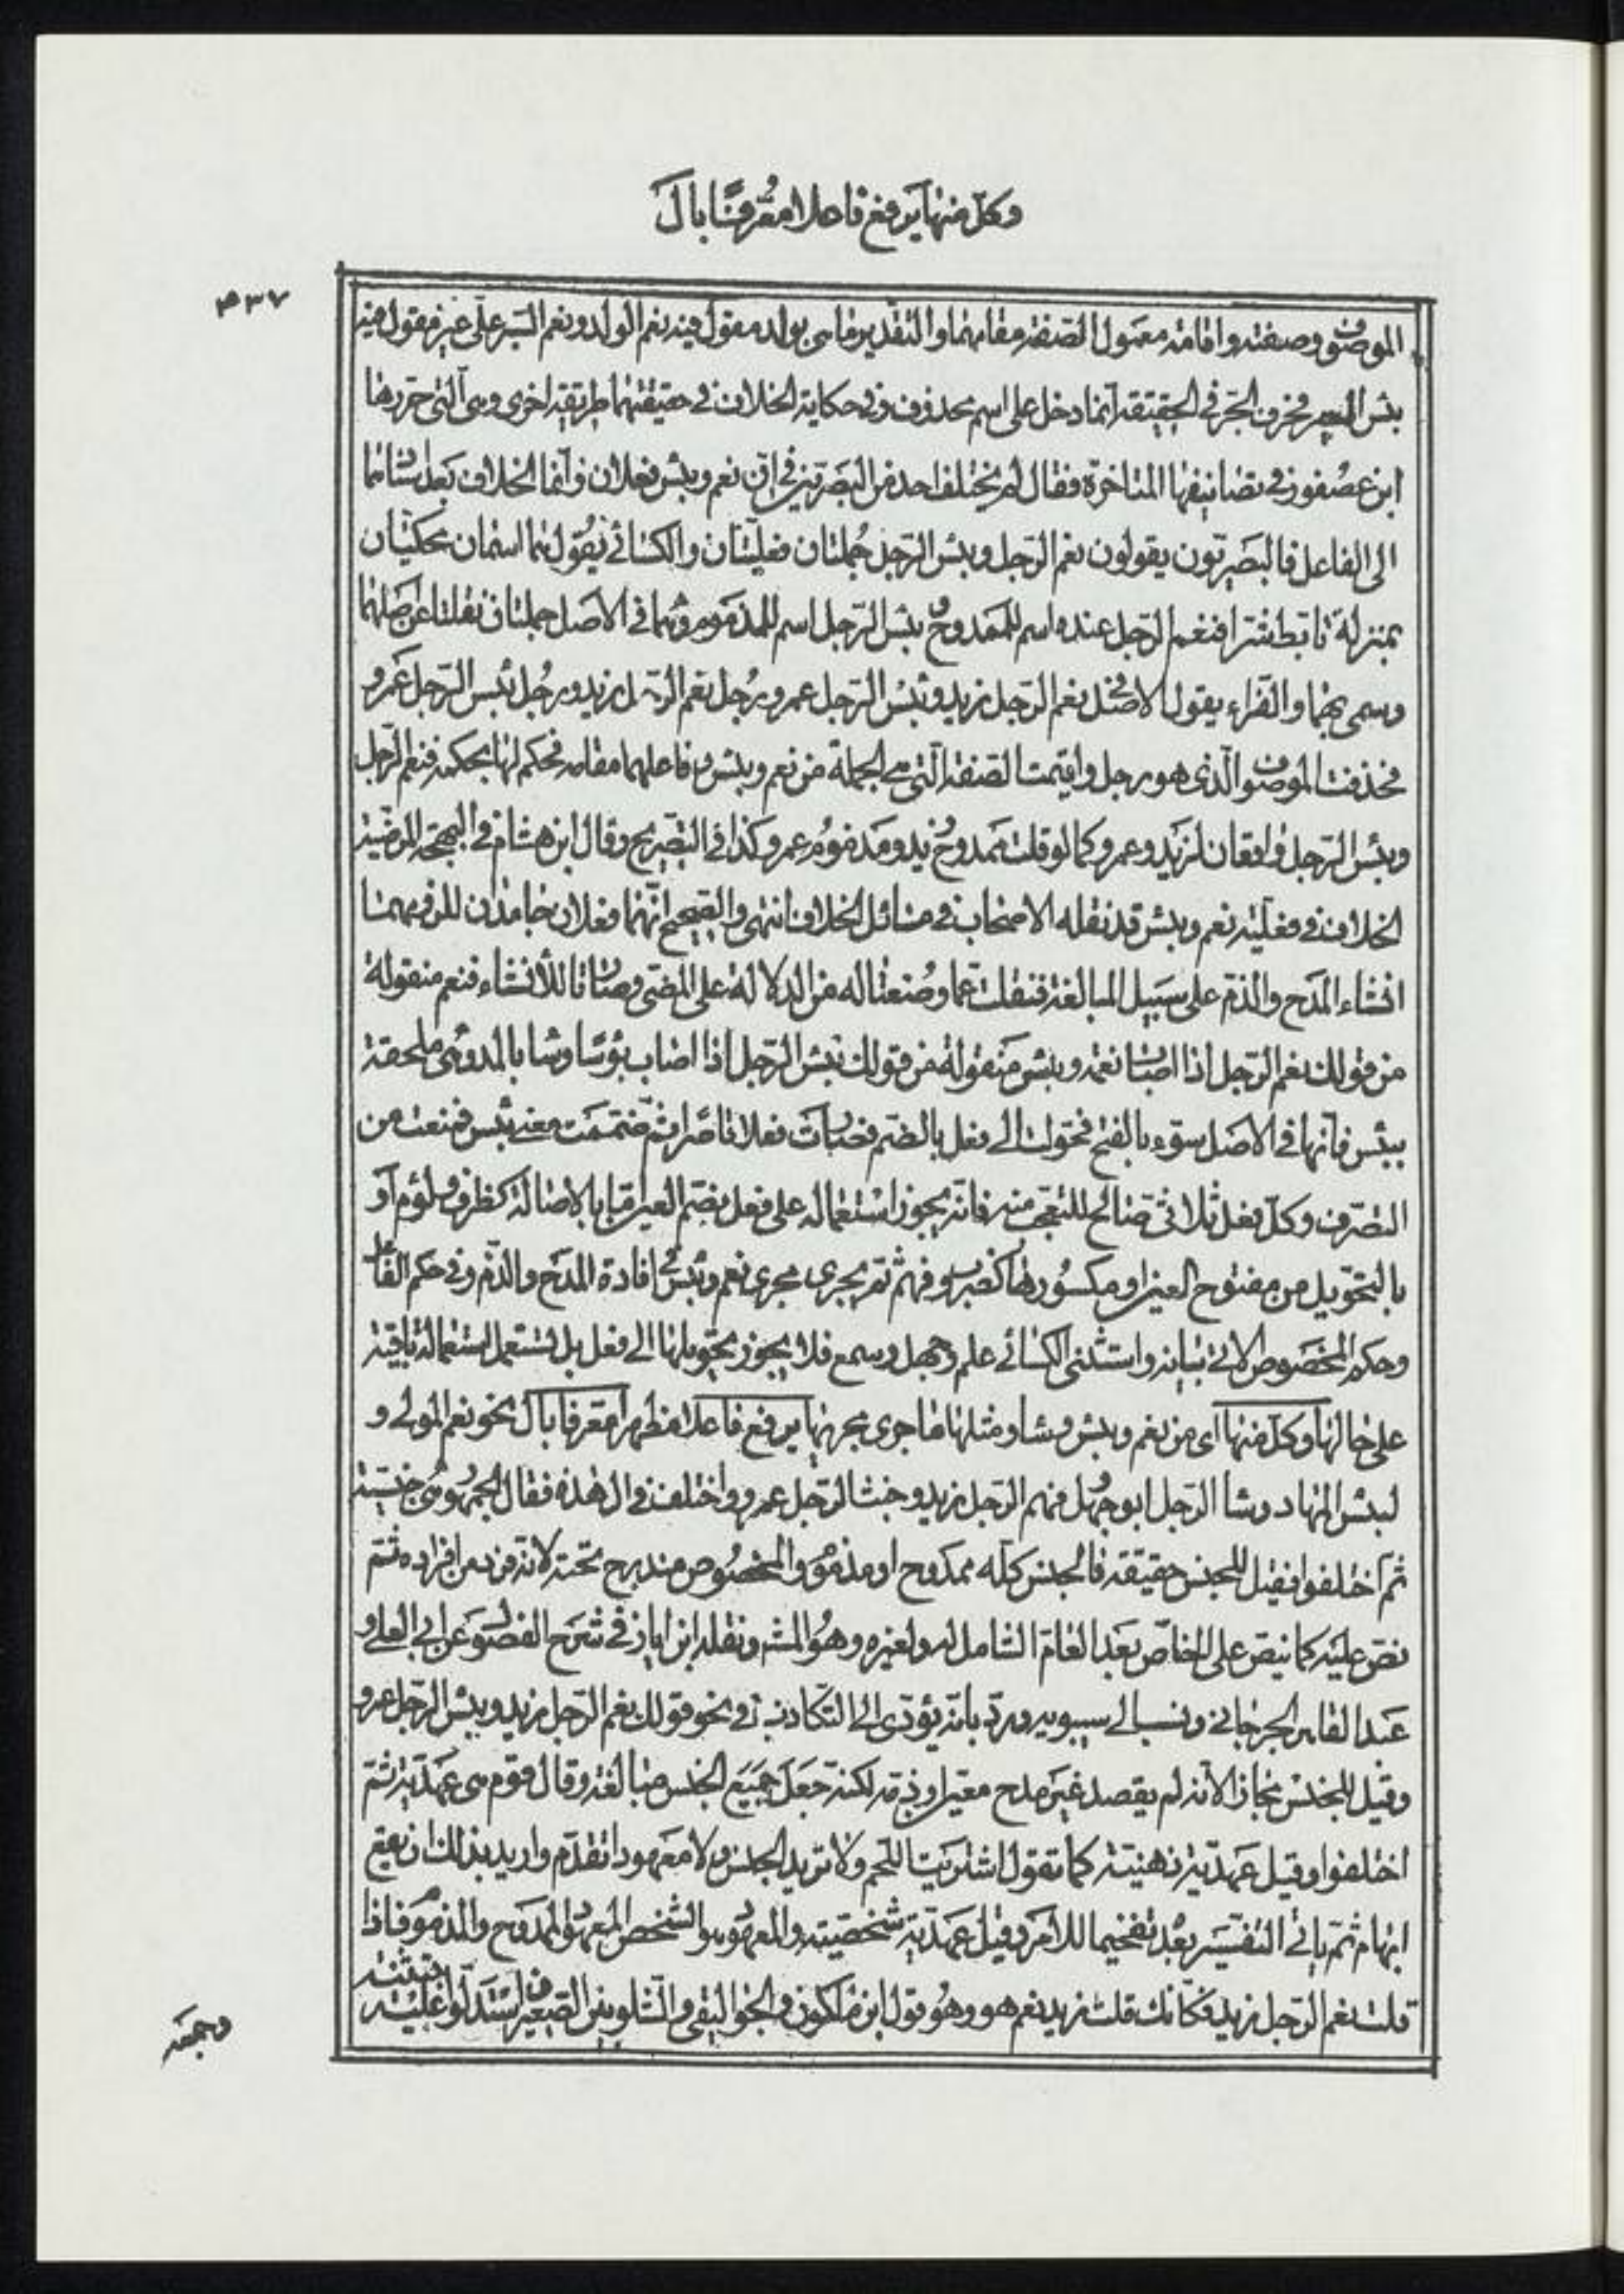 وكل منها يرفع فاعلا معرفا بال
٤٣٧
الموصوف وصفته واقامة معمول الصفة مقامهما والتقدير ما هى بولد مقول فيه نعم الولد ونعم السير على عير مقول فيه
بئس العير فحرف الجر في الحقيقة انما دخل على اسم محذوف وفي حكاية الخلاف في حقيقتهما طريقة اخرى وهى التى حررها
ابن عصفور في تصانيفها المتاخرة فقال لم يختلف احد من البصريين في ان نعم وبئس فعلان وانما الخلاف بعد اسنادهما
الى الفاعل فالبصريون يقولون نعم الرجل وبئس الرجل جملتان فعليتان والكسائي يقول هما اسمان محكيان
بمنزلة تابط شرا فنعم الرجل عنده اسم للممدوح وبئس الرجل اسم للمذموم وهما في الاصل جملتان نقلتا عن اصلهما
وسمى بهما والفراء يقول الاصل نعم الرجل زيد وبئس الرجل عمرو رجل نعم الرجل زيد ورجل بئس الرجل عمرو
فحذفت الموصوف الذى هو رجل واقيمت الصفة التى هي الجملة من نعم وبئس وفاعلهما مقامه فحكم لها بحكمه فنعم الرجل
وبئس الرجل رافعان لزيد وعمرو كما لو قلت ممدوح زيد ومذموم عمرو كذا في التصريح وقال ابن هشام في البهجة المرضية
الخلاف في فعلية نعم وبئس قد نقله الاصحاب في مسائل الخلاف انتهى والصحيح انهما فعلان جامدان للزومهما
انشاء المدح والذم على سبيل المبالغة فنقلت عما وضعتا له من الدلالة على المضى وصارتا للأنشاء فنعم منقولة
من قولك نعم الرجل اذا اصاب نعمة وبئس منقولة من قولك بئس الرجل اذا اصاب بؤسا وساء بالمد وهى ملحقة
ببئس فانها في الاصل سوء بالفتح فحولت الى فعل بالضم فصارت فعلا قاصرا ثم ضمنت معنى بئس فمنعت من
التصرف وكل فعل ثلاثى صالح للتعجب منه فانه يجوز استعماله على فعل بضم العين اما بالاصالة كظرف ولؤم او
بالتحويل من مفتوح العين او مكسورها كضرب وفهم ثم يجرى مجرى نعم وبئس في افادة المدح والذم وفي حكم الفاعل
وحكم المخصوص الاتي بيانه واستثنى الكسائي علم وجهل وسمع فلا يجوز تحويلها الى فعل بل تستعمل استعماله باقية
على حالها وكل منها اى من نعم وبئس وساء ومثلها ما جرى مجريها يرفع فاعلا مظهرا معرفا بال نحو نعم المولى و
لبئس المهاد وساء الرجل ابو جهل وفهم الرجل زيد وخبث الرجل عمرو واختلف في ال هذه فقال الجمهور هى جنسية
ثم اختلفوا فقيل للجنس حقيقة فالجنس كله ممدوح او مذموم والمخصوص مندرج تحته لانه فرد من افراده ثم
نص عليه كما ينص على الخاص بعد العام الشامل له ولغيره وهو المشهور ونقله ابن اياز في شرح الفصول عن ابي العلى و
عبد القاهر الجرجاني ونسب الى سيبويه ورد بانه يؤدى الى التكاذب في نحو قولك نعم الرجل زيد وبئس الرجل عمرو
وقيل للجنس مجازا لانه لم يقصد غير مدح معين او ذمه لكنه جعل جميع الجنس مبالغة وقال قوم هى عهدية ثم
اختلفوا وقيل عهدية ذهنية كما تقول اشتريت اللحم ولا تريد الجنس ولا معهودا تقدم واريد بذلك ان يقع
ابهام ثم ياتي التفسير بعد تفخيما للامر وقيل عهدية شخصية والمعهود هو الشخص المعهود الممدوح والمذموم فاذا
قلت نعم الرجل زيد فكانك قلت زيد نعم هو وهو قول ابن ملكون والجواليقى والشلوبين الصغير واستدلوا عليه بتثنيته
وجمعه